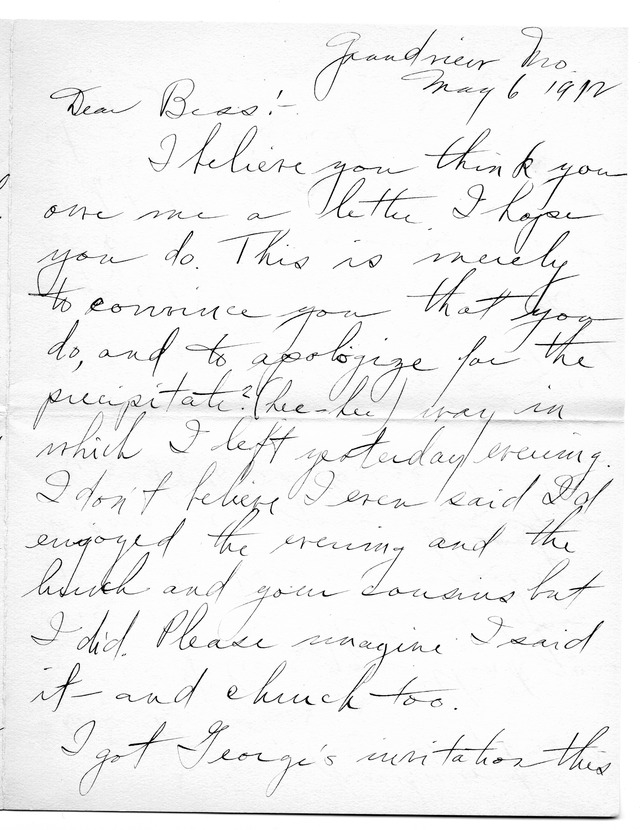 Grandview Mo.
May 6 1912
Dear Bess:-
I believe you think you
owe me a letter. I hope
you do. This is merely
to convince you that you
do, and to apologize for the
precipitate? (hee-hee) way in
which I left yesterday evening.
I don't believe I even said I'd
enjoyed the evening and the
lunch and your cousins but
I did. Please imagine I said
it - and church too.
I got George's invitation this